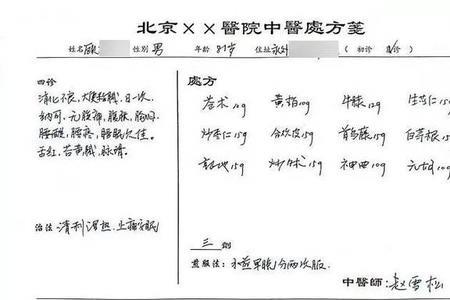 北京××醫院中醫處方箋
姓名 顾 性别 男 年齡 87岁 住址 永外 (初診 診)
四诊
消化不良,大便粘稠,日一次,
纳可,无腹痛,腹胀,胸闷,
腰酸,腰疼,睡眠欠佳。
舌红,苔黄腻,脉滑。
治法 清利湿热,止痛安眠
處方
苍术12g 黄柏10g 牛膝12g 生苡仁15g
炒枣仁15g 合欢皮15g 首乌藤15g 白茅根15g
熟地15g 炒白术15g 10g 元胡10g
三 劑
煎服法: 水煎 分两次服.
中醫師: 赵雪松